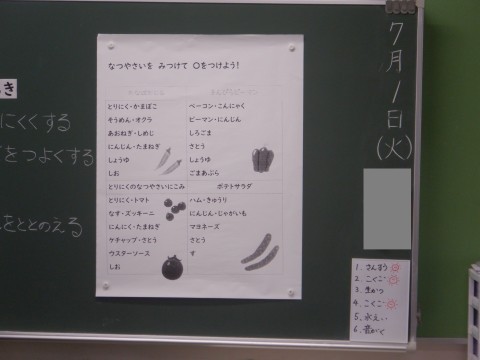 なつやさいを みつけて ○をつけよう!
とりにく・かまぼこ
そうめん・オクラ
あおねぎ・しめじ
にんじん・たまねぎ
しょうゆ
しお
ベーコン・こんにゃく
ピーマン・にんじん
しろごま
さとう
しょうゆ
ごまあぶら
とりにくのなつやさいにこみ
とりにく・トマト
なす・ズッキーニ
にんにく・たまねぎ
ケチャップ・さとう
ウスターソース
しお
ポテトサラダ
ハム・きゅうり
にんじん・じゃがいも
マヨネーズ
さとう
す
き
にくくする
をつよくする
をととのえる
7月1日(火)
1. さんすう
2. こくご
3. 生かつ
4. こくご
5. 水えい
6. 音がく